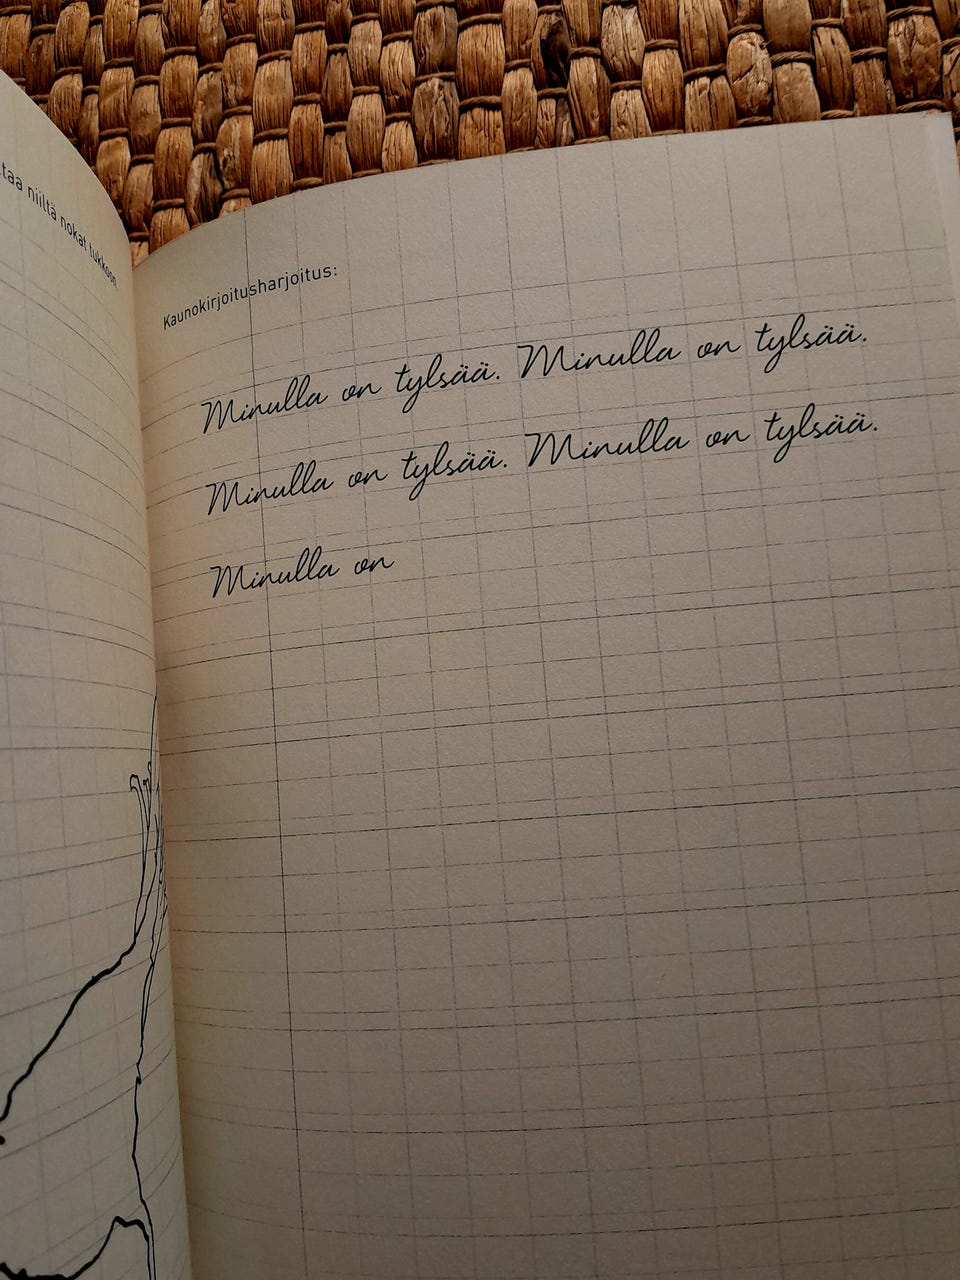 taa niiltä nokat tukkoon.
Kaunokirjoitusharjoitus:
Minulla on tylsää. Minulla on tylsää.
Minulla on tylsää. Minulla on tylsää.
Minulla on